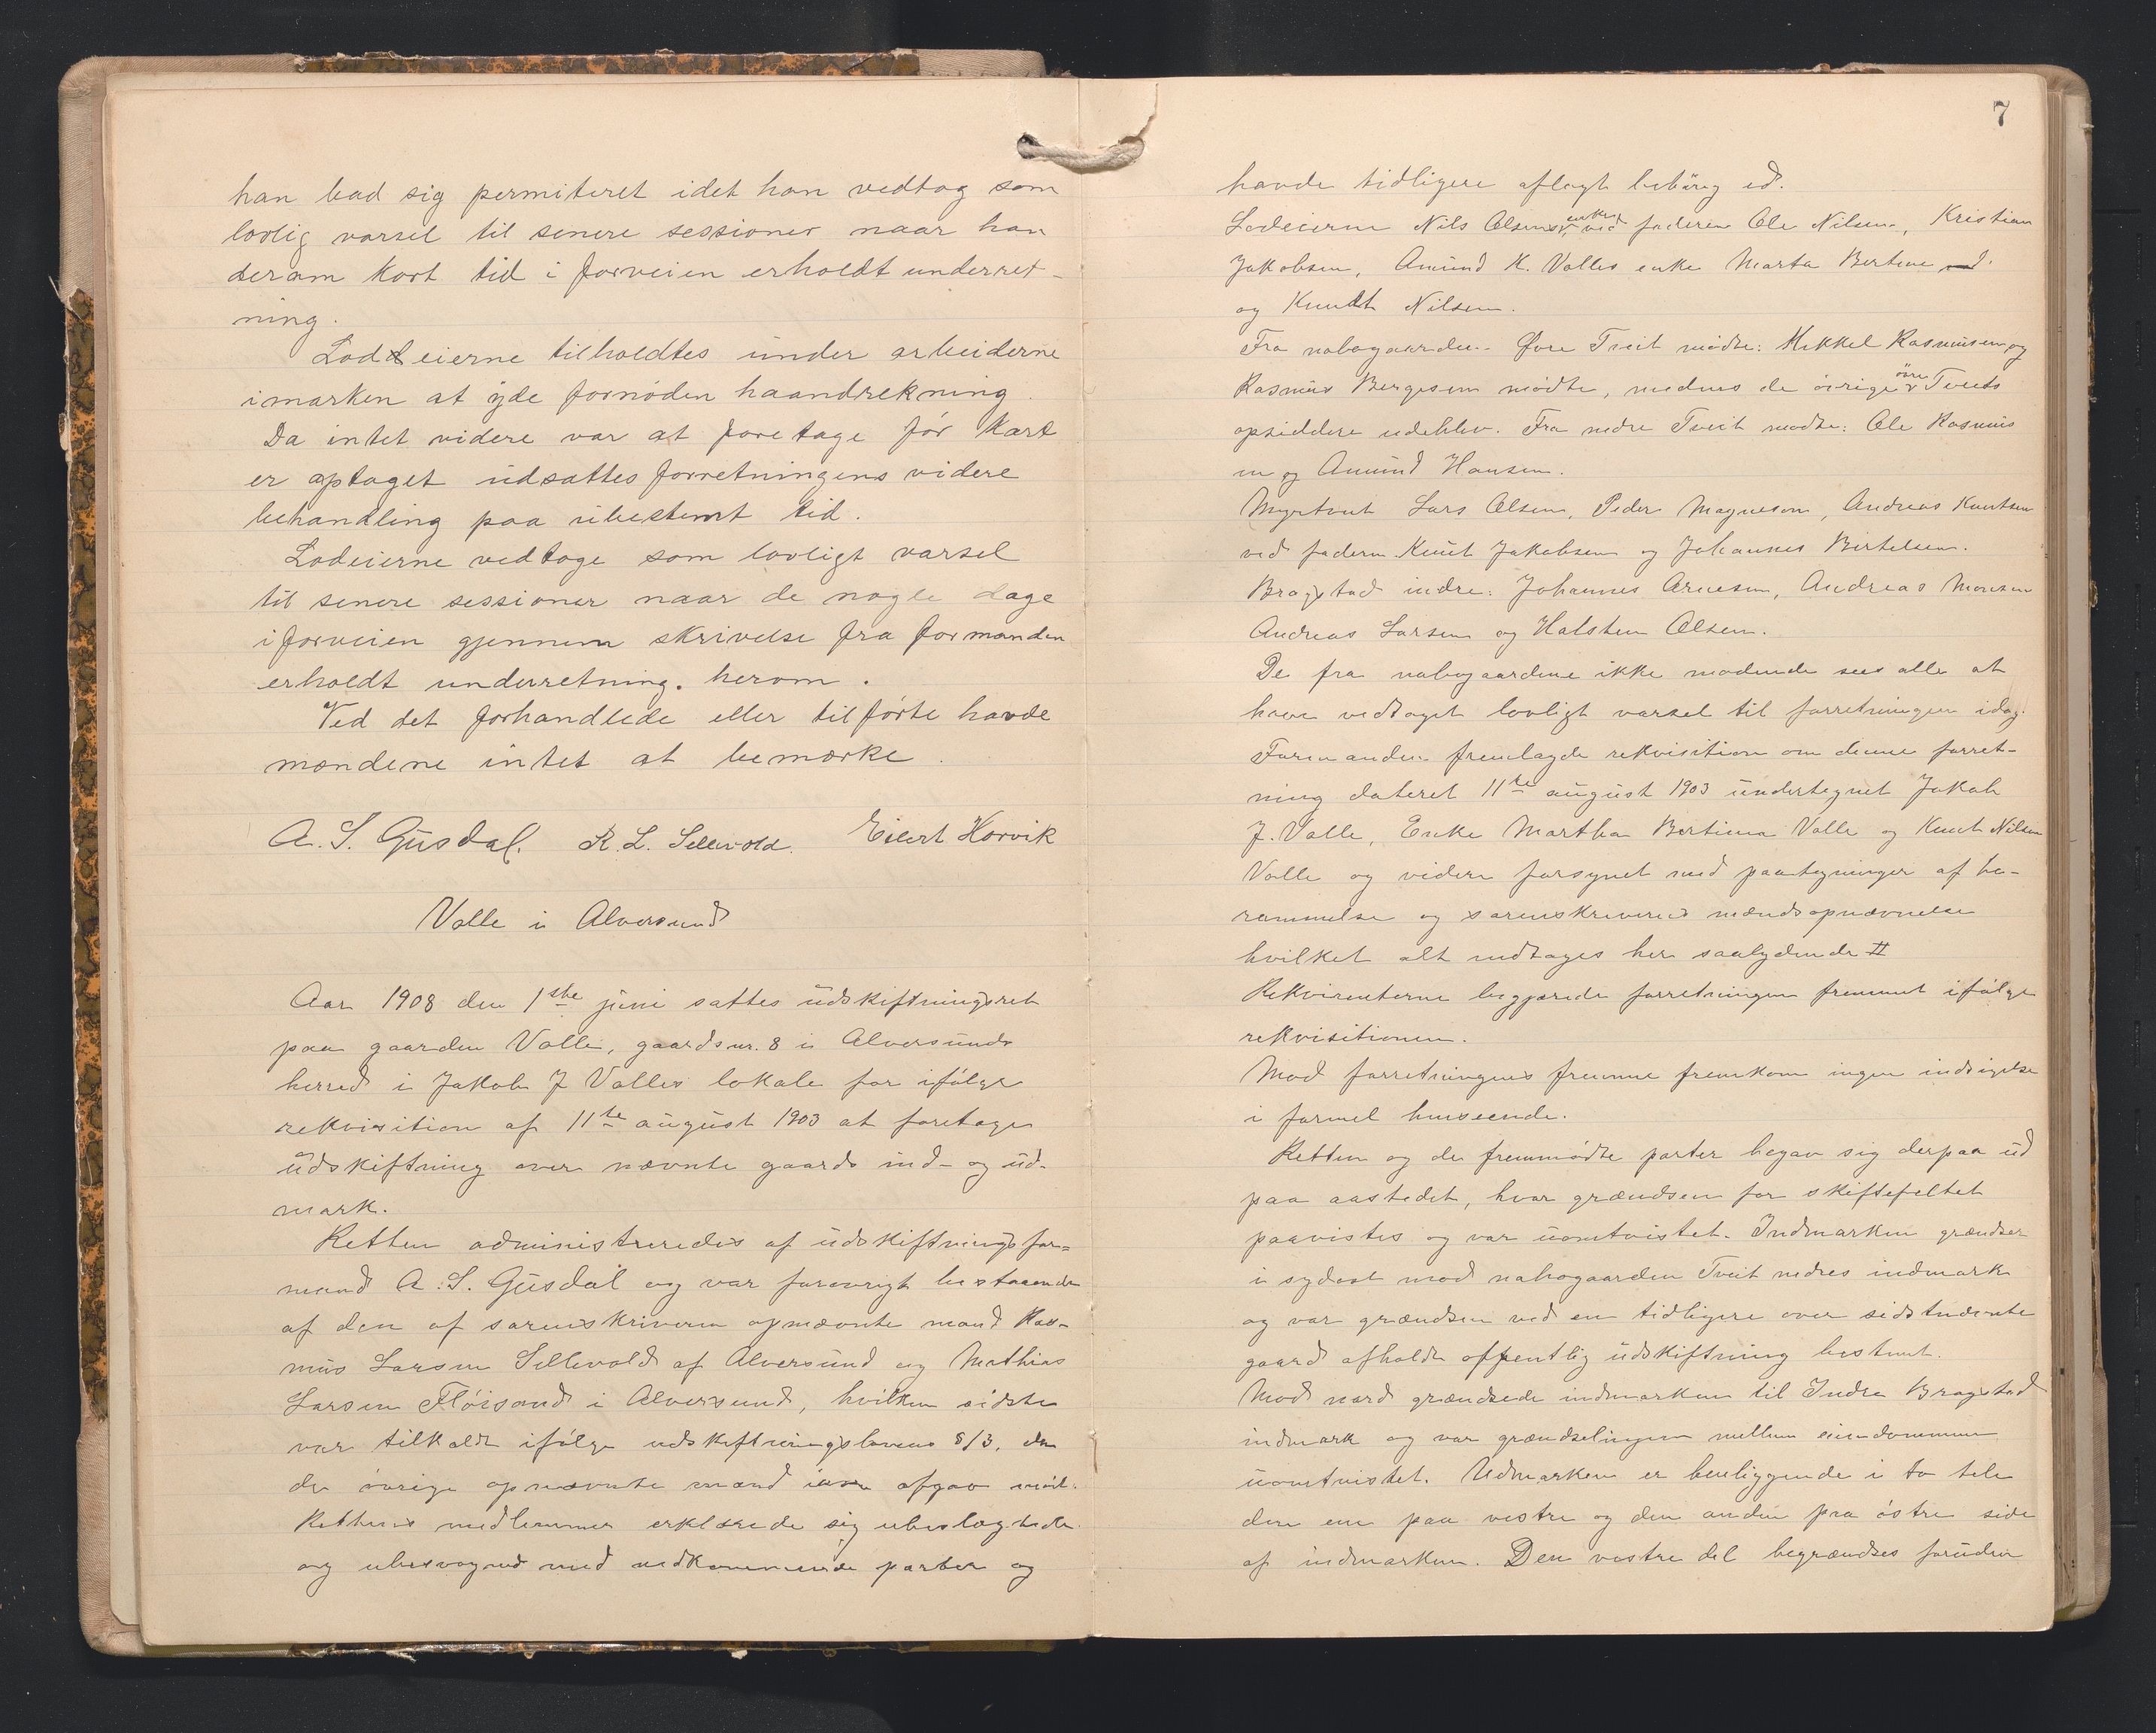 han bad sig permiteret idet han vedtog som
lovlig varsel til senere sessioner naar han
derom kort tid i forveien erholdt underret-
ning.
Lodeierne tilholdtes under arbeiderne
i marken at yde fornøden haandrekning.
Da intet videre var at foretage før kart
er optaget udsattes forretningens videre
behandling paa ubestemt tid.
Lodeierne vedtoge som lovligt varsel
til senere sessioner naar de nogle dage
i forveien gjennem skrivelse fra formanden
erholdt underretning. herom.
Ved det forhandlede eller tilførte havde
mændene intet at bemærke.
A. S. Gusdal. R. L. Sellevold. Eilert Horvik
Valle i Alversund
Aar 1908 den 1ste juni sattes udskiftningsret
paa gaarden Valle, gaardsnr. 8 i Alversunds
herred i Jakob J Valles lokale for ifølge
rekvisition af 11te august 1903 at foretage
udskiftning over nævnte gaards ind- og ud-
mark.
Retten administreredes af udskiftningsfor-
mand A. S. Gusdal og var forøvrigt bestaaende
af den af sorenskriveren opnævnte mand Ras-
mus Larsen Sellevold af Alversund og Mathias
Larsen Fløisand i Alversund, hvilken sidste
var tilkaldt ifølge udskiftningslovens § 13, da
den øvrige opnævnte mand ikke afgav møde.
Rettens medlemmer erklærede sig ubeslægtede
og ubesvogred med vedkommende parter og
7
havde tidligere aflagt behørig ed.
Lodeierne Nils Olsens enke ved faderen Ole Nilsen, Kristian
Jakobsen, Amund K. Valles enke Marta Bertine
og Knudt Nilsen.
Fra nabogaarden Øvre Tveit mødte: Mikkel Rasmusen og
Rasmus Bergesen mødte, medens de øvrige øvre Tveits
opsiddere udeblev. Fra nedre Tveit mødte: Ole Rasmus
en og Amund Hansen.
Myrtveit Lars Olsen, Peder Magneson, Andreas Knutsen
ved faderen Knut Jakobsen og Johannes Bertelsen.
Bragstad indre: Johannes Arnesen, Andreas Monsen
Andreas Larsen og Halsten Olsen.
De fra nabogaardene ikke mødende sees alle at
have vedtaget lovligt varsel til forretningen idag.
Formanden fremlagde rekvisition om denne forret-
ning dateret 11te august 1903 undertegnet Jakob
J. Valle, Enke Martha Bertina Valle og Knut Nilsen
Valle og videre forsynet med paategninger af be-
rammelse og sorenskriverens mændsopnævnelse
hvilket alt indtages her saalydende #
Rekvirenterne begjærede forretningen fremmet ifølge
rekvisitionen.
Mod forretningens fremme fremkom ingen indsigelse
i formel henseende.
Retten og de fremmødte parter begav sig derpaa ud
paa aastedet, hvor grændsen for skiftefeltet
paavistes og var uomtvistet. Indmarken grændser
i sydost mod nabogaarden Tveit nedres indmark
og var grændsen ved en tidligere over sidstnævnte
gaard afholdt offentlig udskiftning bestemt.
Mod nord grændsede indmarken til Indre Bragstad
indmark og var grændselinjen mellem eiendommene
uomtvistet. Udmarken er beliggende i to dele
den ene paa vestre og den anden paa østre side
af indmarken. Den vestre del begrændses foruden